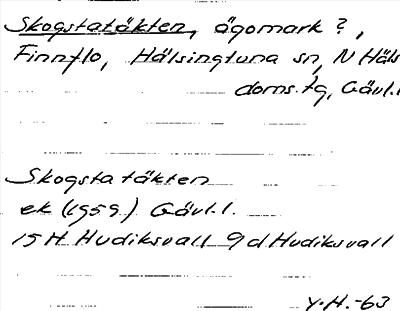 Skogstatäkten, ägomark ?,
Finnflo, Hälsingtuna sn, N Häls
doms.tg, Gävl.l
Skogsta täkten
ek (1959) Gävl.l.
15 H Hudiksvall 9 d Hudiksvall
Y.H.-63